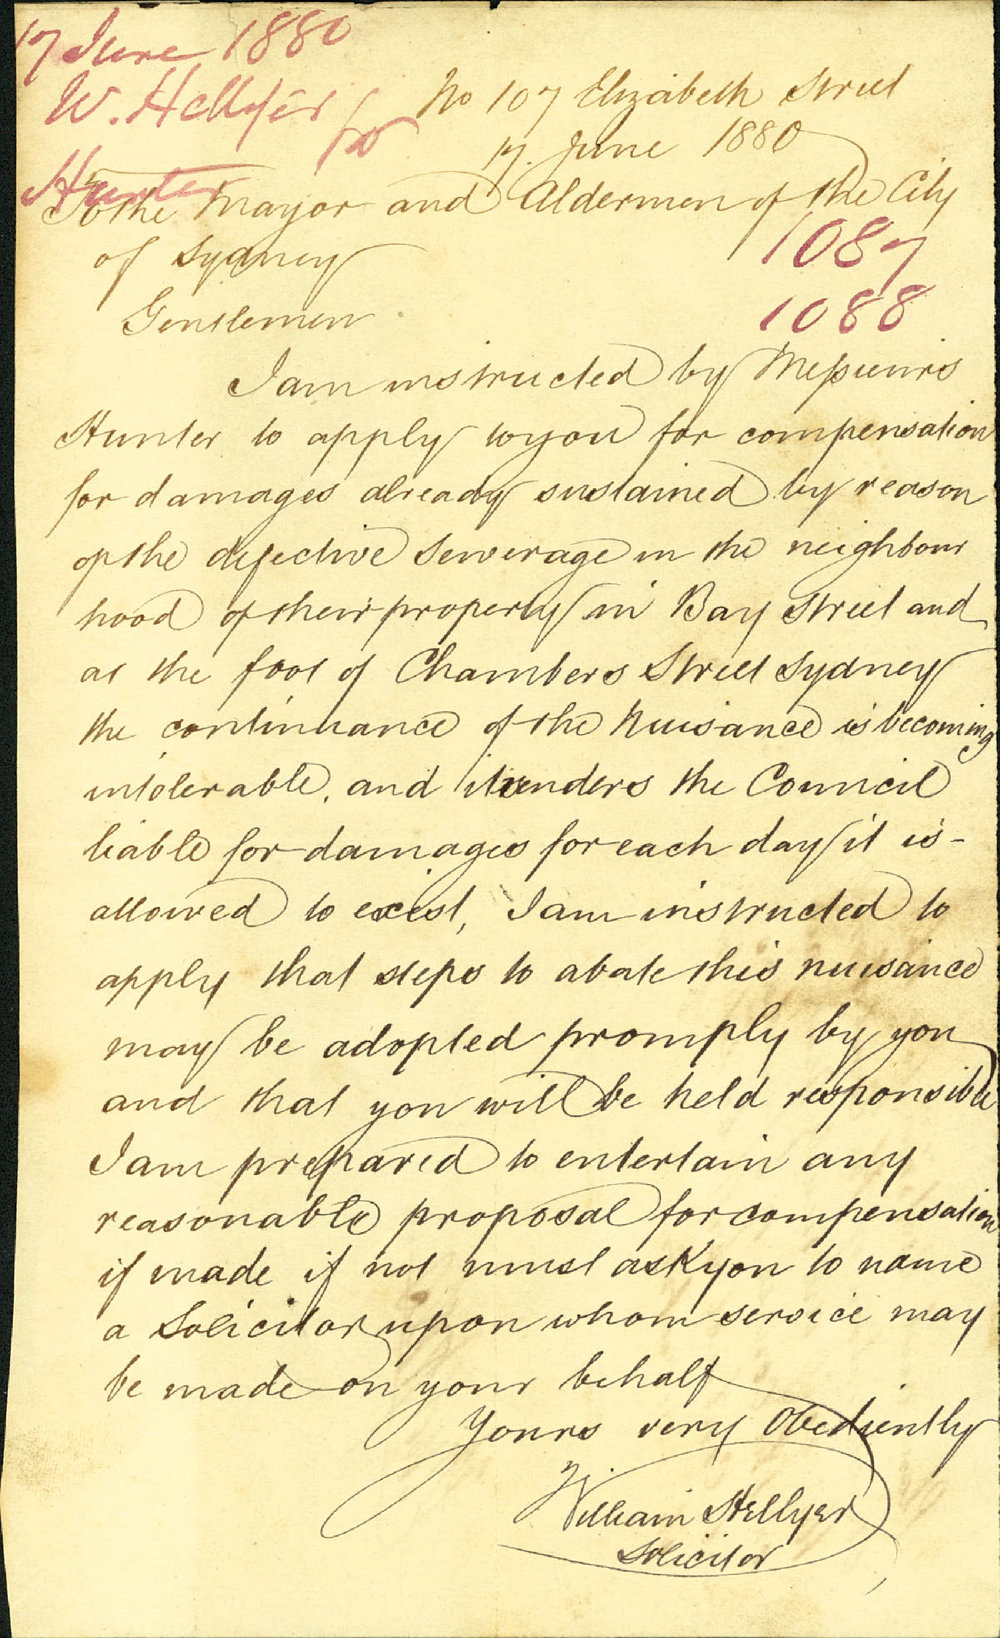 17 June 1880
W. Hellyer
for
Hunter
No 107 Elizabeth Street
17. June 1880
To the Mayor and Aldermen of the City
of Sydney
1087
Gentlemen
1088
I am instructed by Messieurs
Hunter to apply to you for compensation
for damages already sustained by reason
of the defective sewerage in the neighbour
hood of their property in Bay Street and
at the foot of Chambers Street Sydney
the continuance of the nuisance is becoming
intolerable, and it renders the Council
liable for damages for each day it is -
allowed to exist, I am instructed to
apply that steps to abate this nuisance
may be adopted promply by you
and that you will be held responsible
I am prepared to entertain any
reasonable proposal for compensation
if made if not must ask you to name
a Solicitor upon whom service may
be made on your behalf
Yours very Obediently
William Hellyer
Solicitor